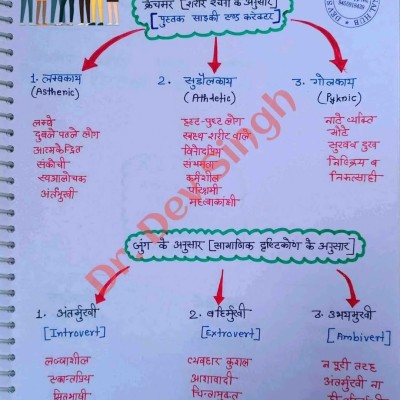 क्रेचमर [शरीर रचना के अनुसार]
[पुस्तक साइकी एण्ड करेक्टर]
1. लम्बकाय
(Asthenic)
लम्बे
दुबले पतले लोग
आत्मकेंद्रित
संकोची
स्वआलोचक
अंतर्मुखी
2. सुडौलकाय
(Athletic)
हृष्ट-पुष्ट लोग
स्वस्थ शरीर वाले
विनोदप्रिय
कर्मशील
परिश्रमी
महत्वाकांक्षी
3. गोलकाय
(Pyknic)
नाटे व्यक्ति
मोटे
निष्क्रिय व
Dr. Dev Singh
जुंग के अनुसार [सामाजिक दृष्टिकोण के अनुसार]
1. अंतर्मुखी
[Introvert]
लज्जाशील
एकान्तप्रिय
मितभाषी
2. बहिर्मुखी
[Extrovert]
व्यवहार कुशल
आशावादी
चिन्तामुक्त
3. उभयमुखी
[Ambivert]
न पूरी तरह
अंतर्मुखी ना